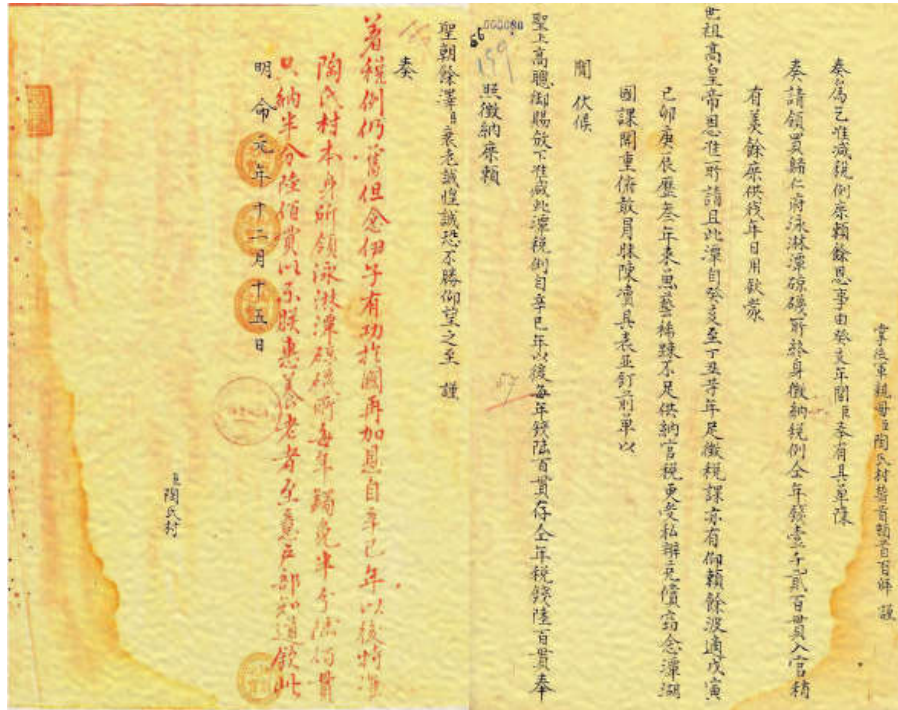 掌後軍親母臣陶氏村稽首頓首百拜 謹
奏為乞准減稅例庶賴餘恩事由癸亥年間臣奉有具單陳
奏請領買歸仁府泳淋潭硠磯所終身徵納稅例全年錢壹千貳百貫入官稍
有羨餘庶供伐年日用欽蒙
世祖高皇帝恩准所請且此潭自癸亥至丁丑等年足徵稅課亦有仰賴餘波適戊寅
己卯庚辰歷叁年來萬藝稀踈不足供納官稅更受私辦充償竊念潭湖
國課関重俯敢冒昧陳凟具表並釘前單以
聞 伏候
聖上高聰御賜放下准減此潭稅例自辛巳年以後每年錢陸百貫存全年稅錢陸百貫奉
照徵納庶賴
聖朝餘澤臣衰老誠惶誠恐不勝仰望之至 謹
奏
著稅例仍舊但念伊年有功於國再加恩自辛巳年以後特准
陶氏村本身所領泳淋潭硠磯所每年蠲免半分陸佰貫
只納半分陸佰貫以示朕惠養老者至意戶部知道欽此
明命元年十二月十五日
臣陶氏村
000080
66
159
57